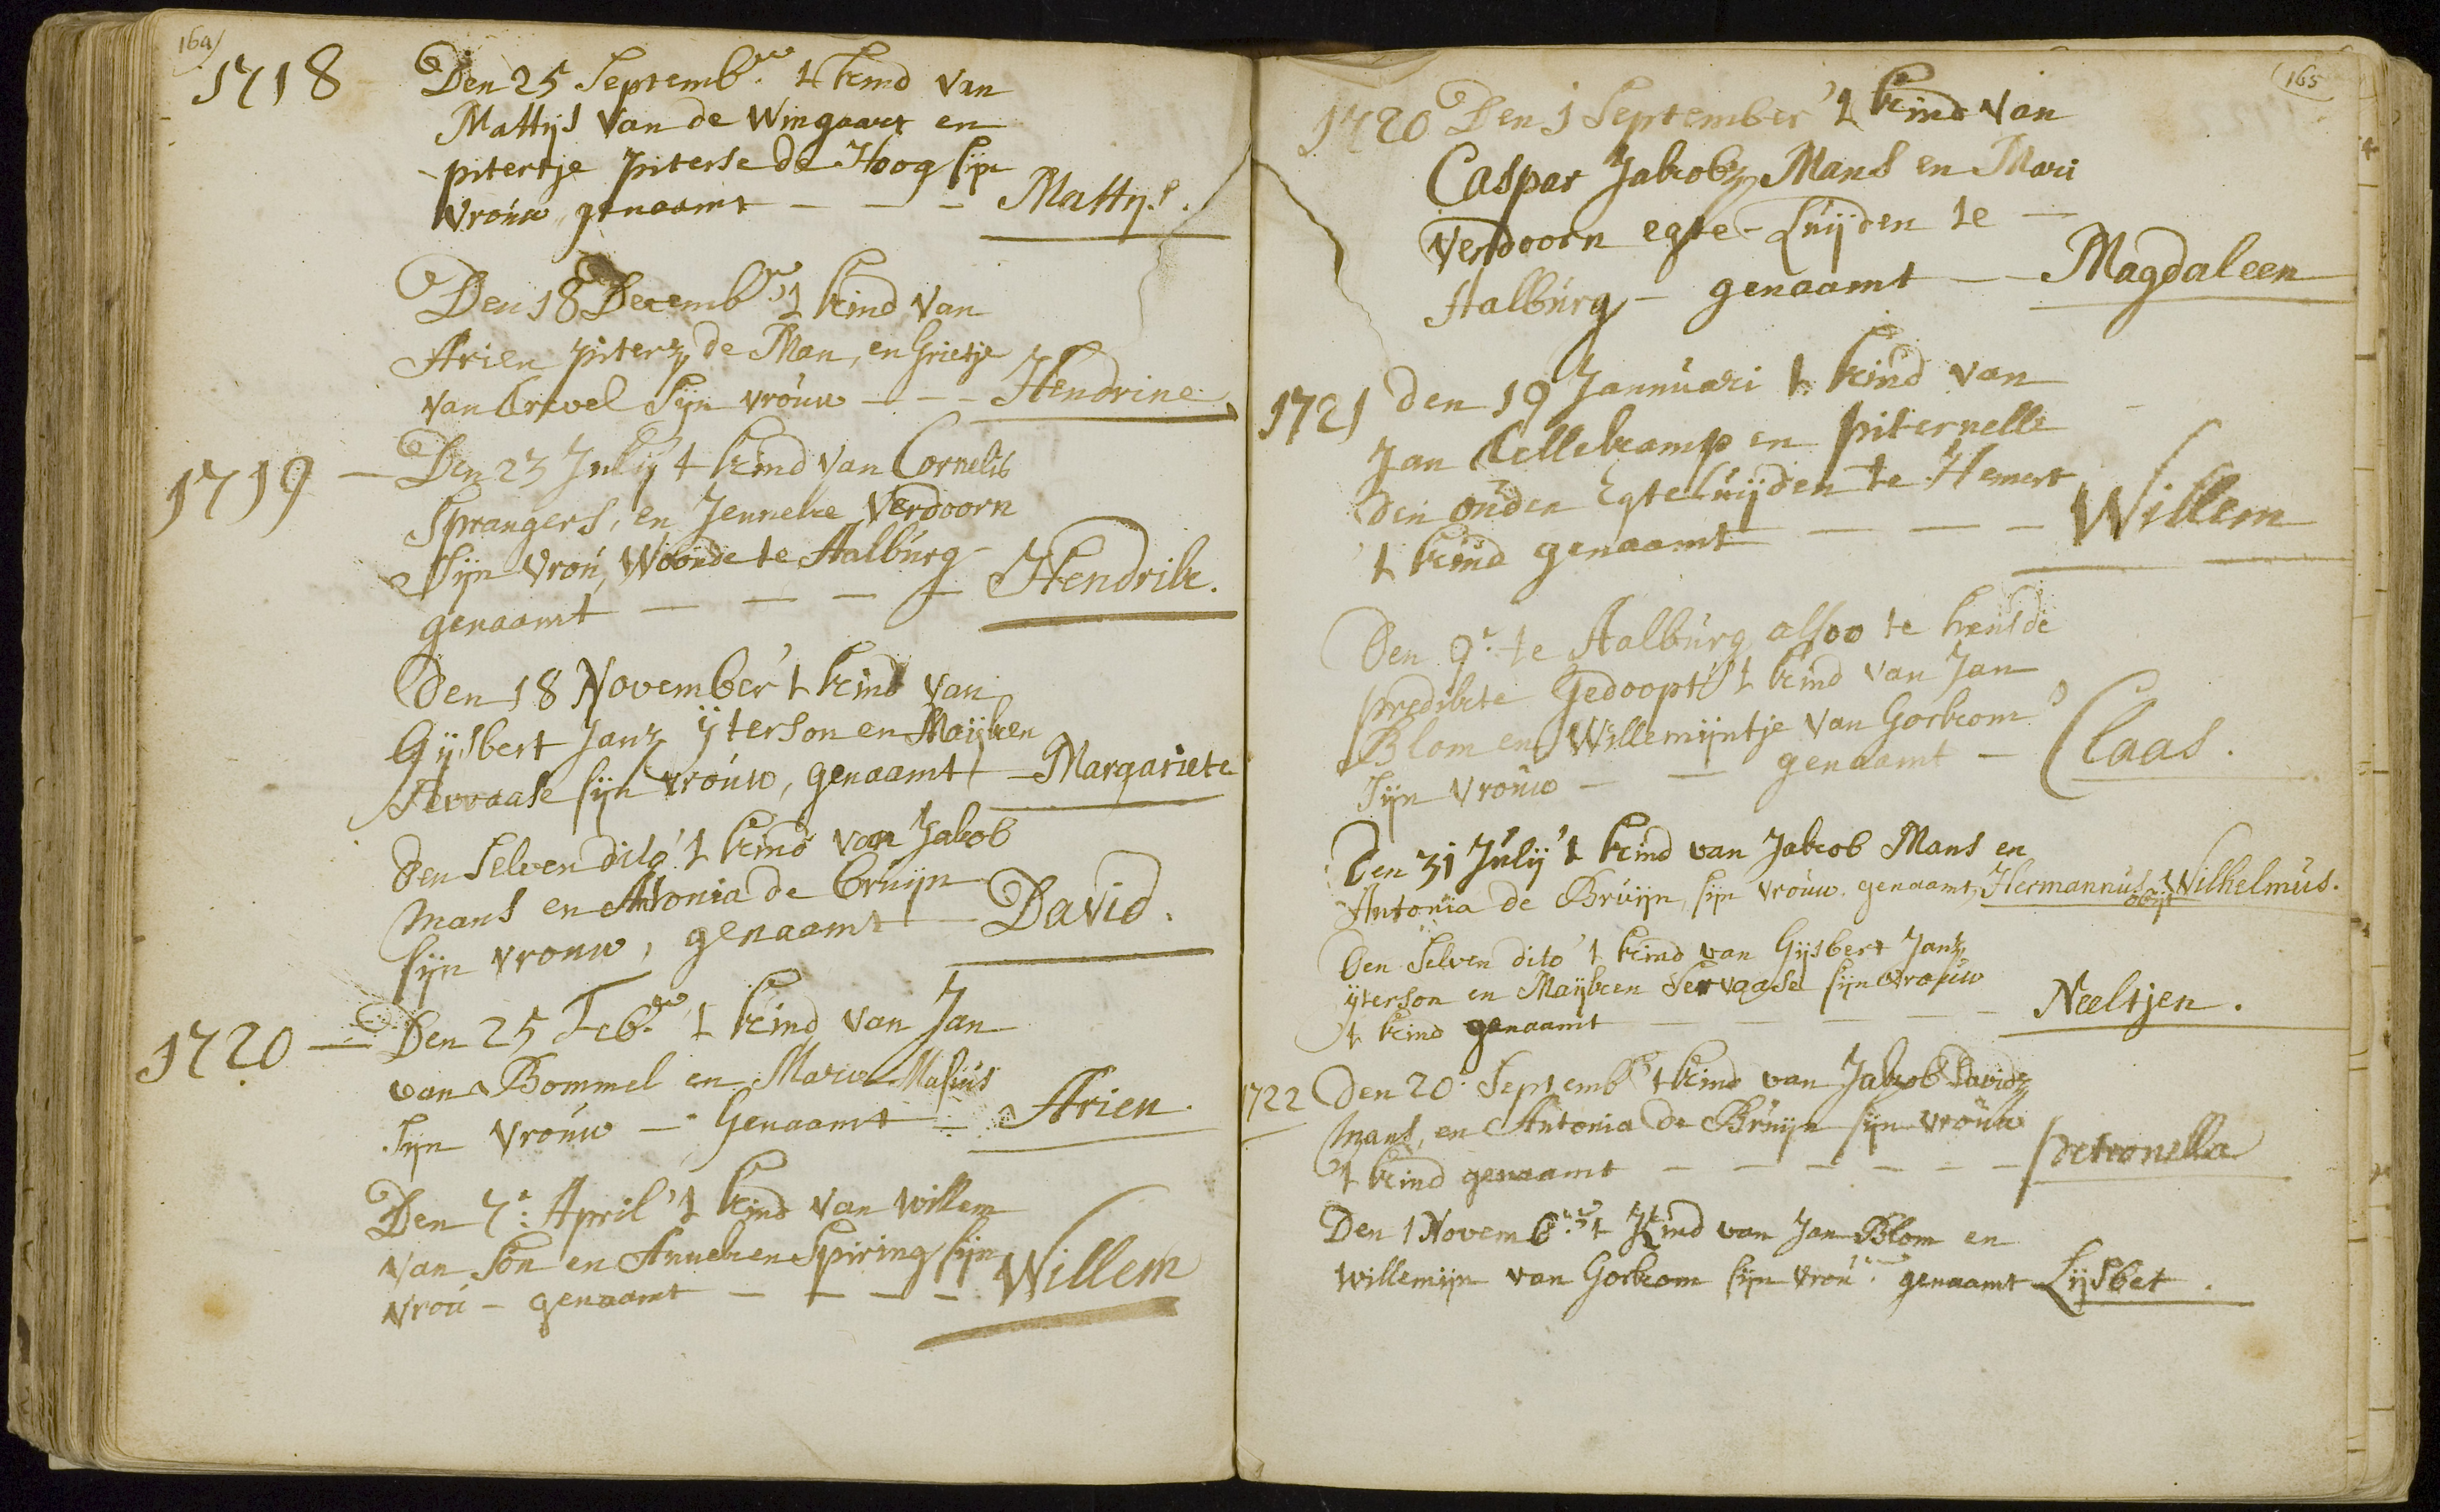 164
1718 Den 25 Septemb.er 't kind van
Mattijs van de Wingaart en
pitertje piterse de Hoog sijn
vrouw genaamt - - - Mattijs.
Den 18 Decemb.er 't kind van
Arien piterz de Man, en Grietje
van Crevel sijn vrouw - - - Hendrine
1719 - Den 23 Julij 't kind van Cornelis
Sprangers, en Jenneke Verdoorn
Sijn vrou, woonde te Aalburg -
genaamt - - - - Hendrik.
Den 18 November 't kind van
Gijsbert Janz ijterson en Maijken
Servaase sijn vrouw, genaamt - Margariete
Den selven dito 't kind van Jakob
Mans en Antonia de Bruijn
sijn vrouw, genaamt - David.
1720 - Den 25 Feb.er 't kind van Jan
van Bommel en Maria Masius
Sijn vrouw - Genaamt - Arien.
Den 7: April 't kind van Willem
van Son en Anneken Spiring sijn
vrou - genaamt - - - - Willem
165
1720 Den 1 September 't kind van
Caspar Jakobz Mans en Mari
Verdoorn egte-Luijden te -
Aalburg - genaamt - Magdaleen
1721 den 19 Jannuari 't kind van
Jan Cellekamp en piternelle
den ouden Egteluijden te Hemert
't kind genaamt - - - Willem
Den 9: te Aalburg alsoo te heusde
predikte Gedoopt 't kind van Jan
Blom en Willemijntje van Gorkom
Sijn vrouw - - genaamt - Claas.
Den 31 Julij 't kind van Jakob Mans en
Antonia de Bruijn, sijn vrouw. genaamt, Hermannus Wilhelmus.
obijt
Den Selven dito 't kind van Gijsbert Janz
ijterson en Maijken Servaase sijn vrouw
't kind genaamt - - - - - Neeltjen.
1722 Den 20: Septemb.r 't kind van Jakob Davidz
Mans, en Antonia de Bruijn sijn vrouw
't kind genaamt - - - - - - Petronella
Den 1 Novemb.er 't Kind van Jan Blom en
Willemijn van Gorkom sijn vrou.w genaamt Lijsbet.